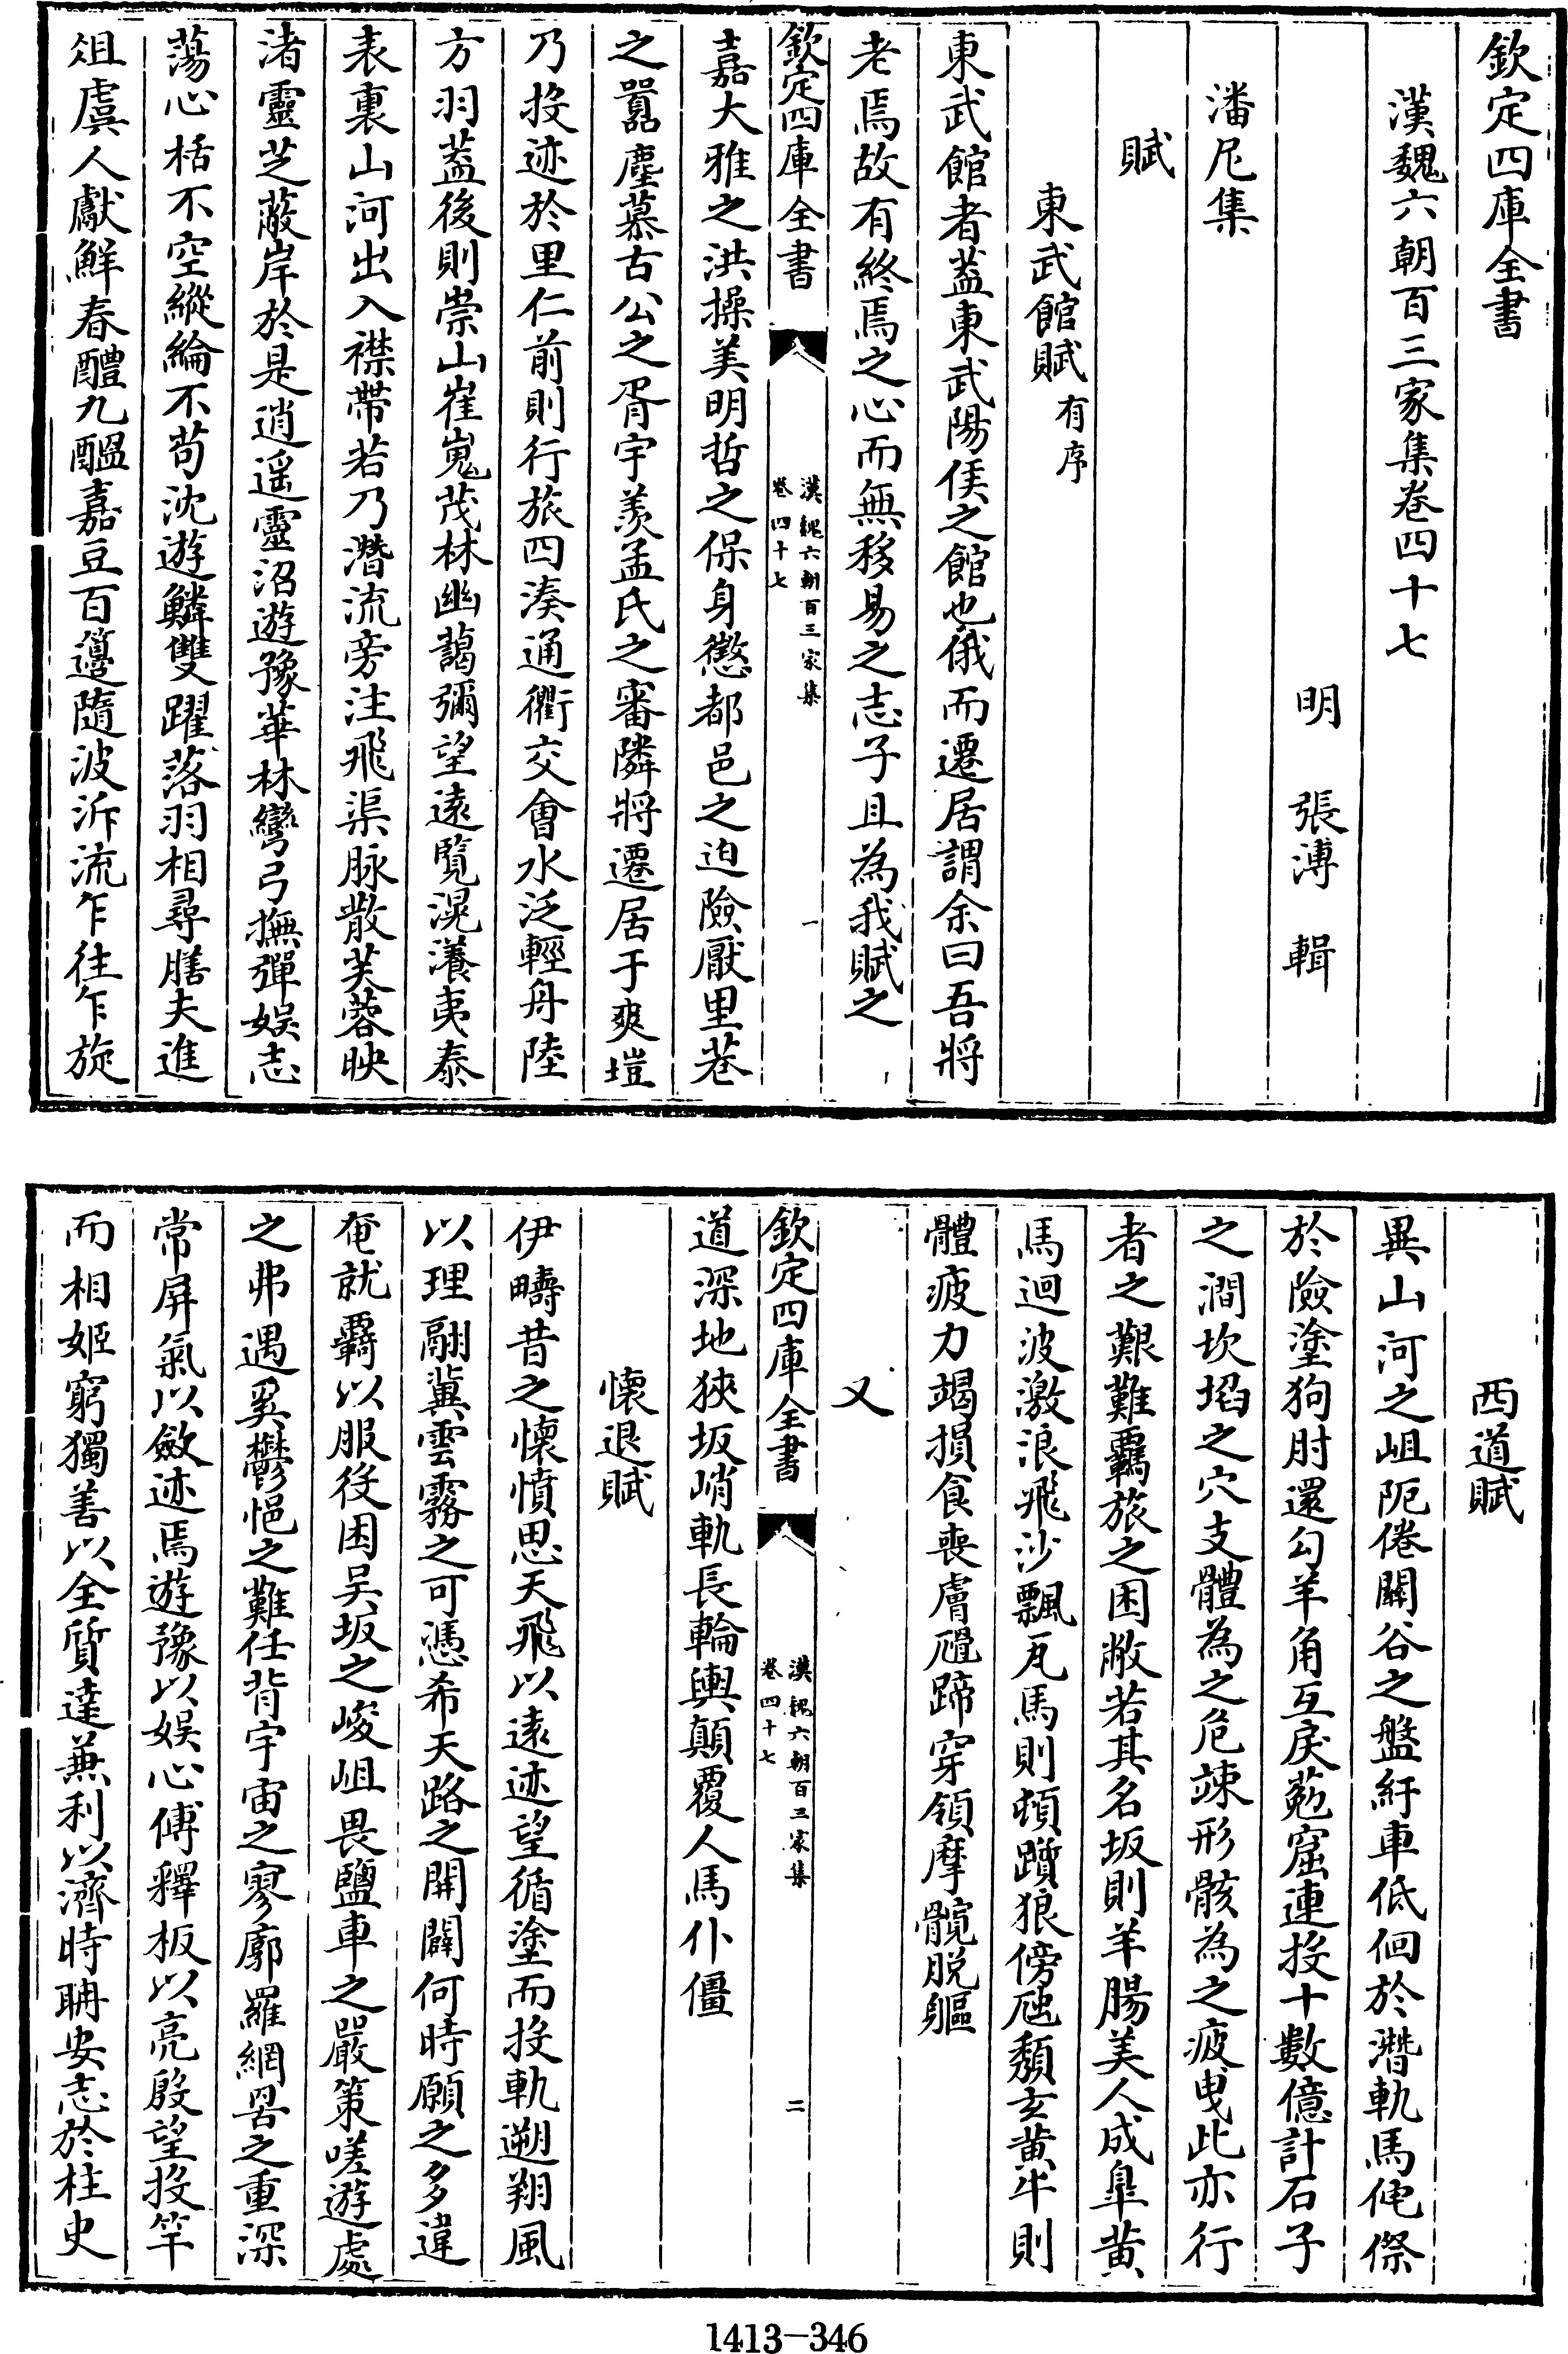 欽定四庫全書
漢魏六朝百三家集卷四十七
明 張溥 輯
潘尼集
賦
東武館賦有序
東武館者蓋東武陽侯之館也俄而遷居謂余曰吾將
老焉故有終焉之心而無移易之志子且為我賦之
欽定四庫全書
漢魏六朝百三家集
卷四十七
一
嘉大雅之洪操美明哲之保身懲都邑之迫險厭里巷
之囂塵慕古公之胥宇羨孟氏之審隣將遷居于爽塏
乃投迹於里仁前則行旅四湊通衢交會水泛輕舟陸
方羽蓋後則崇山崔嵬茂林幽藹彌望遠覽滉瀁夷泰
表裏山河出入襟帶若乃潛流旁注飛渠脉散芙蓉映
渚靈芝蔽岸於是逍遥靈沼遊豫華林彎弓撫彈娛志
蕩心栝不空縱綸不苟沈遊鱗雙躍落羽相尋膳夫進
俎虞人獻鮮春醴九醞嘉豆百籩隨波泝流乍往乍旋
西道賦
異山河之岨阨倦關谷之盤紆車低佪於潛軌馬侘傺
於險塗狗肘還勾羊角互戾菀窟連投十數億計石子
之澗坎埳之穴支體為之危竦形骸為之疲曳此亦行
者之艱難羇旅之困敝若其名坂則羊腸美人成臯黄
馬迴波激浪飛沙飄瓦馬則頓躓狼傍虺頽玄黄牛則
體疲力竭損食喪膚𡰠蹄穿領摩髖脱軀
又
欽定四庫全書
漢魏六朝百三家集
卷四十七
二
道深地狹坂峭軌長輪輿顛覆人馬仆僵
懷退賦
伊疇昔之懷憤思天飛以遠迹望循塗而投軌遡翔風
以理翮冀雲霧之可憑希天路之開闢何時願之多違
奄就羇以服役困吴坂之峻岨畏鹽車之嚴策嗟遊處
之弗遇奚鬱悒之難任背宇宙之寥廓羅網罟之重深
常屏氣以斂迹焉遊豫以娛心傅釋板以亮殷望投竿
而相姬窮獨善以全質達兼利以濟時聃安志於柱史
1413-346